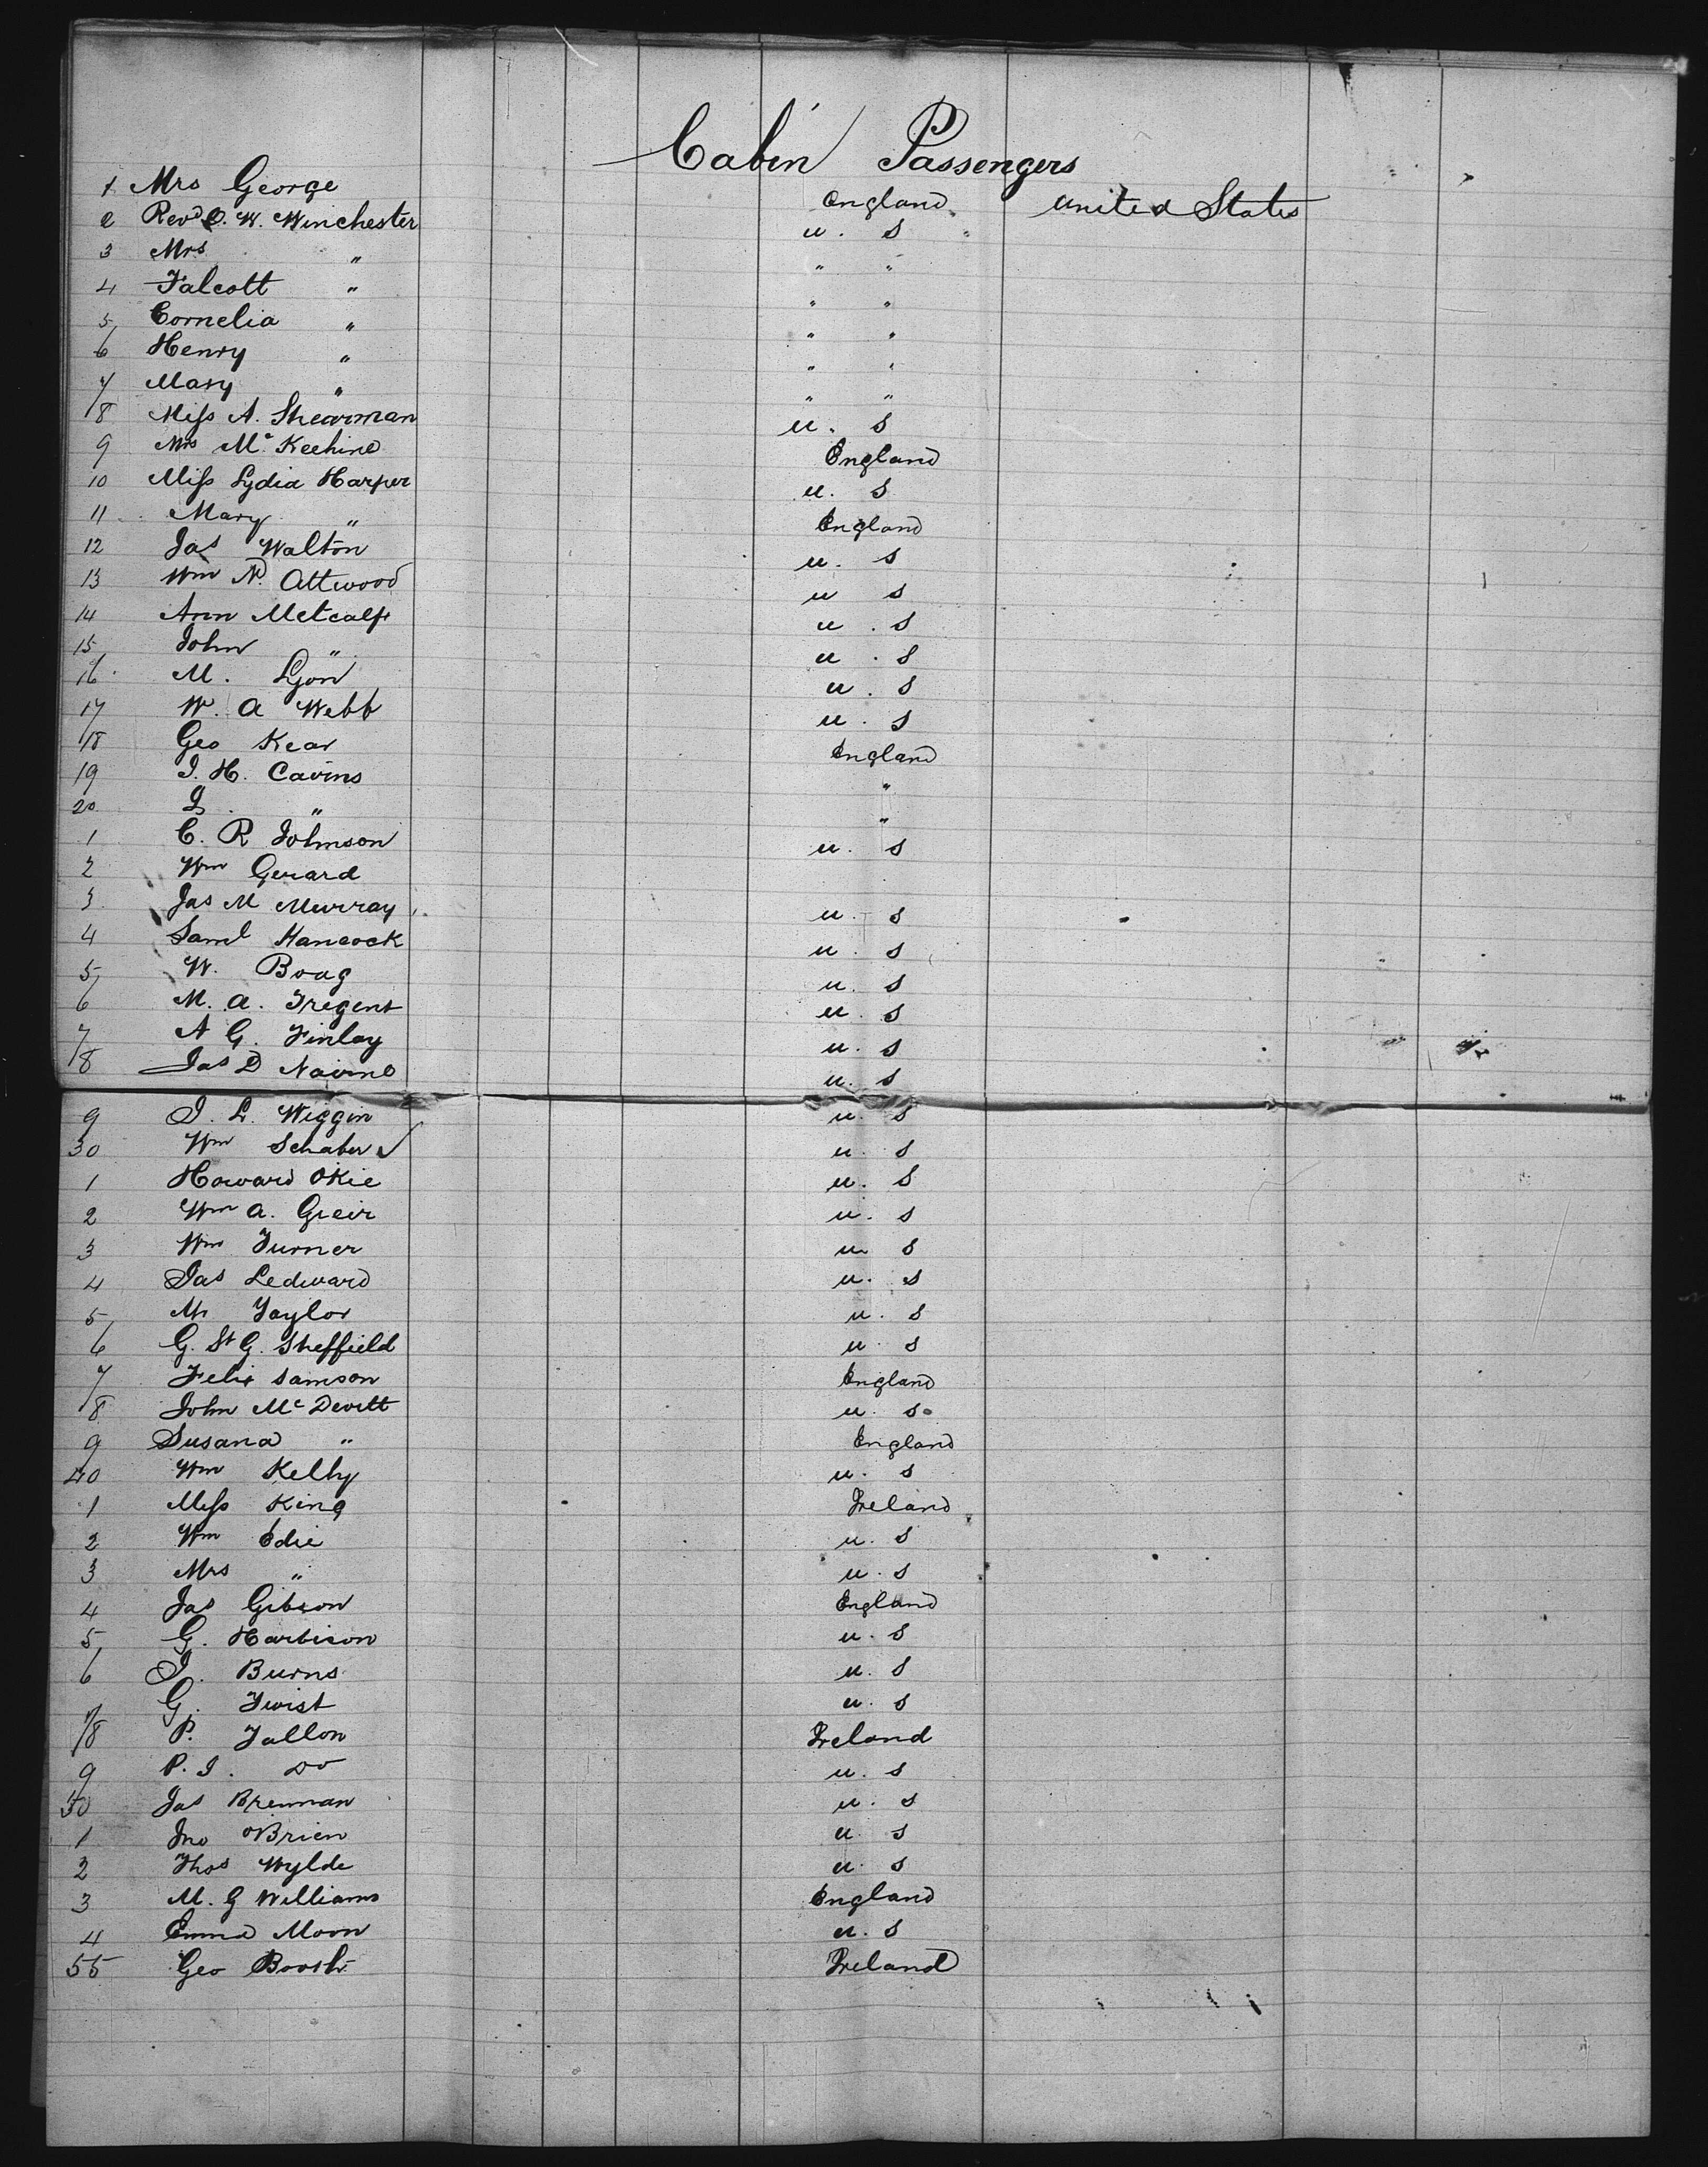 Cabin Passengers
1 Mrs George England United States
2 Revd C. W. Winchester U. S
3 Mrs " " "
4 Talcott " " "
5 Cornelia " " "
6 Henry " " "
7 Mary " " "
8 Miss A. Shearman U. S
9 Mrs Mc Keehine England
10 Miss Lydia Harper U. S
11 Mary " England
12 Jas Walton U. S
13 Wm N. Attwood U S
14 Ann Metcalf U. S
15 John " U. S
16 M. Lyon U. S
17 W. A Webb U. S
18 Geo Kear England
19 J. H. Cavins "
20 J " "
1 C. R Johnson U. S
2 Wm Gerard
3 Jas M Murray U. S
4 Saml Hancock U. S
5 W. Boag U. S
6 M. A. Tregent U. S
7 A G. Finlay U. S
8 Jas D Nairne U. S
9 J. L. Wiggin U. S
30 Wm Schaber U. S
1 Howard Okie U. S
2 Wm A. Greir U. S
3 Wm Turner U S
4 Jas Ledward U. S
5 Mr Taylor U. S
6 G. St G. Sheffield U. S
7 Felix Samson England
8 John Mc Devitt U. S
9 Susana " England
40 Wm Kelly U. S
1 Miss King Ireland
2 Wm Edie U. S
3 Mrs " U. S
4 Jas Gibson England
5 G. Harbison U. S
6 J. Burns U. S
7 G. Twist U. S
8 P. Fallon Ireland
9 P. J. Do U. S
50 Jas Brennan U. S
1 Jno O'Brien U. S
2 Thos Wylde U. S
3 M. G Williams England
4 Emma Moon U. S
55 Geo Booth Ireland